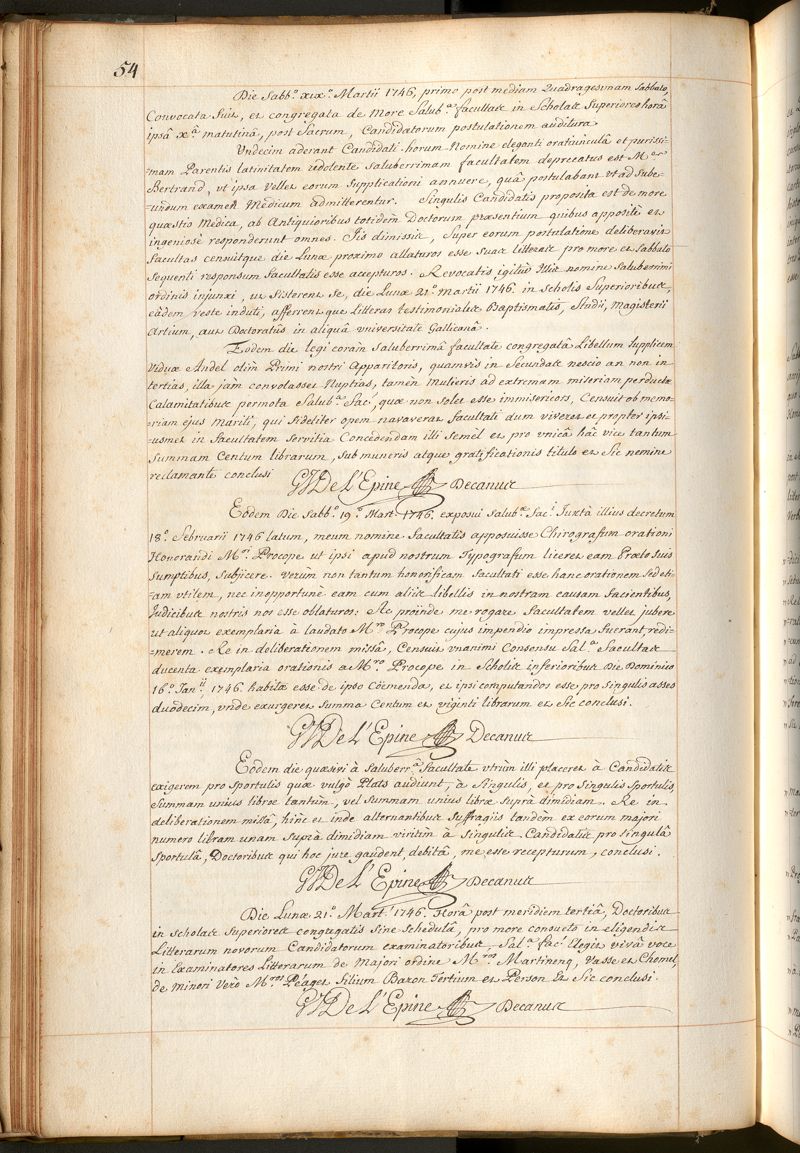 54
Die Sabb.º xixº. Martii 1746, primo post mediam Quadragesimam Sabbato,
Convocata fuit, et congregata de More Salub.ª facultas in Scholas Superiores horâ
ipsâ xª matutinâ, post Sacrum, Candidatorum postulationem auditura.
Undecim aderant Candidati horum Nomine eleganti oratiunculâ et purissi-
-mam Parentis latinitatem redolente saluberrimam facultatem deprecatus est M.er
Bertrand, ut ipsa vellet eorum Supplicationi annuere, quâ postulabant ut ad Sube-
-undum examen Medicum admitterentur. Singulis Candidatis proposita est de more
quæstio Medica, ab Antiquioribus totidem Doctorum præsentium quibus appositè et
ingeniosè responderunt omnes. Iis dimissis, Super eorum postulatione deliberavit
facultas censuitque die Lunæ proximo allaturos esse suas litteras pro more et Sabbato
Sequenti responsum facultatis esse accepturos. Revocatis igitur Illis nomine Saluberrimi
ordinis injunxi, ut Sisterent Se, die Lunæ 21º. martii 1746. in scholis Superioribus,
eâdem veste induti, afferrentque Litteras testimoniales Baptismatis, Studii, Magisterii
Artium, aut Doctoratûs in aliquâ universitate Gallicanâ.
Eodem die legi coram Saluberrimâ facultate congregatâ Libellum Supplicem
Viduæ Andel olim Primi nostri Apparitoris, quamvis in Secundas nescio an non in
tertias, illa jam convolasset Nuptias, tamen Mulieris ad extremam miseriam perductæ
Calamitatibus permota Salub.ª fac., quæ non solet esse immisericors, Censuit ob memo-
-riam ejus Mariti, qui fideliter opem navaverat facultati dum viveret et propter ipsi-
-usmet in facultatem Servitia Concedendam illi Semel et pro unicâ hâc vice tantum
Summam Centum librarum, Sub muneris atque gratificationis titulo et Sic nemine
reclamante conclusi GJ De L'Epine Decanus
Eodem Die Sabb.º 19.º Mart. 1746. exposui Salub.æ fac.i Juxtà illius decretum
18.º februarii 1746 latum, meum nomine facultatis apposuisse Chirografum orationi
Honorandi M.ri Procope ut ipsi apud nostrum Typografum liceret eam Prælo suis
Sumptibus, Subjicere. verùm non tantum honorificam facultati esse hanc orationem Sed eti-
-am utilem, nec inopportunè eam cum aliis libellis in nostram causam facientibus,
Judicibus nostris nos esse oblaturos: Ac proinde me rogare facultatem vellet jubere
ut aliquot exemplaria à laudato M.ro Procope cujus impendio impressa fuerant redi-
-merem. Re in deliberationem missâ, Censuit unanimi Consensu Sal.ª facultas
ducenta exemplaria orationis a M.ro Procope in Scholis inferioribus Die Dominico
16.º Jan.ii, 1746. habitæ esse de ipso Cöemenda, et ipsi computandos esse pro Singulis asses
duodecim, unde exurgeret Summa Centum et viginti librarum et Sic conclusi.
GJ De L'Epine Decanus
Eodem die quæsivi à Saluberr.ª facultate utrùm illi placeret à Candidatis
exigerem pro Sportulis quæ vulgò Plats audiunt, à Singulis, et pro Singulis Sportulis,
Summam unius libræ tantùm, vel Summam unius libræ Suprà dimidiam. Re in
deliberationem missâ, hinc et inde alternantibus Suffragiis tandem ex eorum majori
numero libram unam Suprà dimidiam viritim à Singulis Candidatis pro Singulâ
Sportulâ, Doctoribus qui hoc jure gaudent, debitâ, me esse recepturum, conclusi.
GJ De L'Epine Decanus
Die Lunæ 21.º Mart. 1746. Horâ post meridiem tertiâ, Doctoribus
in scholas Superiores congregatis Sine Schedulâ, pro more consueto in eligendis
Litterarum novorum Candidatorum examinatoribus, Sal.ª fac. Elegit vivâ voce
in Examinatores Litterarum de Majori ordine M.ros Martinenq, Vasse et Chomel,
de minori Verò M.ros Péaget filium Baron Tertium et Person Et Sic conclusi.
GJ De L'Epine Decanus